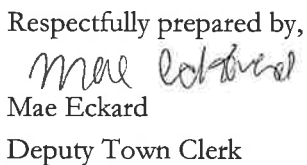 Respectfully prepared by,
Mae Eckard
Mae Eckard
Deputy Town Clerk